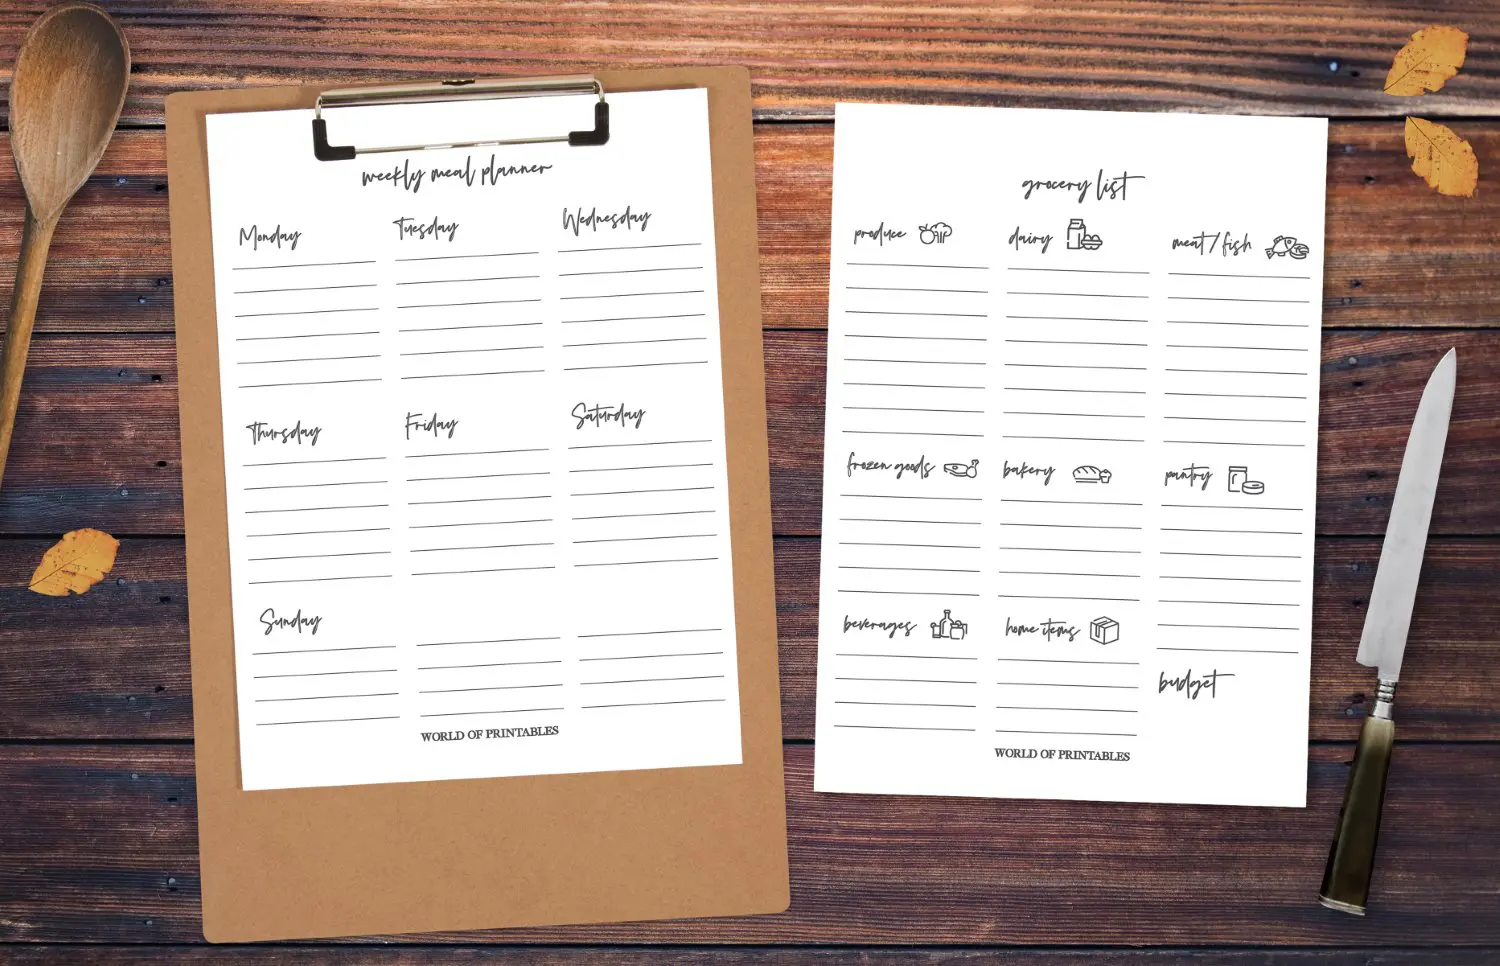 weekly meal planner
Monday
Tuesday
Wednesday
Thursday
Friday
Saturday
Sunday
WORLD OF PRINTABLES
grocery list
produce
dairy
meat / fish
frozen goods
bakery
pantry
beverages
home items
budget
WORLD OF PRINTABLES